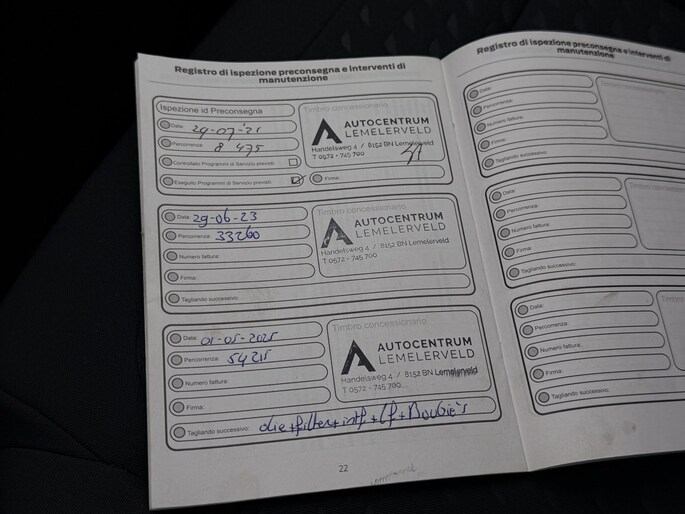 Registro di ispezione preconsegna e interventi di
manutenzione
Ispezione id Preconsegna
Timbro concessionario
Data: 29-07-'21
AUTOCENTRUM
LEMELERVELD
Percorrenza: 8 475
Handelsweg 4 / 8152 BN Lemelerveld
T 0572 - 745 700
Controllato Programmi di Servizio previsti:
Eseguito Programmi di Servizio previsti:
Firma:
Data: 29-06-23
Timbro concessionario
Percorrenza: 33260
AUTOCENTRUM
LEMELERVELD
Numero fattura:
Handelsweg 4 / 8152 BN Lemelerveld
T 0572 - 745 700
Firma:
Tagliando successivo:
Data: 01-05-2025
Timbro concessionario
Percorrenza: 54215
AUTOCENTRUM
LEMELERVELD
Numero fattura:
Handelsweg 4 / 8152 BN Lemelerveld
T 0572 - 745 700
Firma:
Tagliando successivo: olie+filter+intf+lf+Bougie's
22
Registro di ispezione preconsegna e interventi di
manutenzione
Data:
Percorrenza:
Numero fattura:
Firma:
Tagliando successivo:
Timbro concessionario
Data:
Percorrenza:
Numero fattura:
Firma:
Tagliando successivo:
Timbro concessionario
Data:
Percorrenza:
Numero fattura:
Firma:
Tagliando successivo:
Timbro concessionario